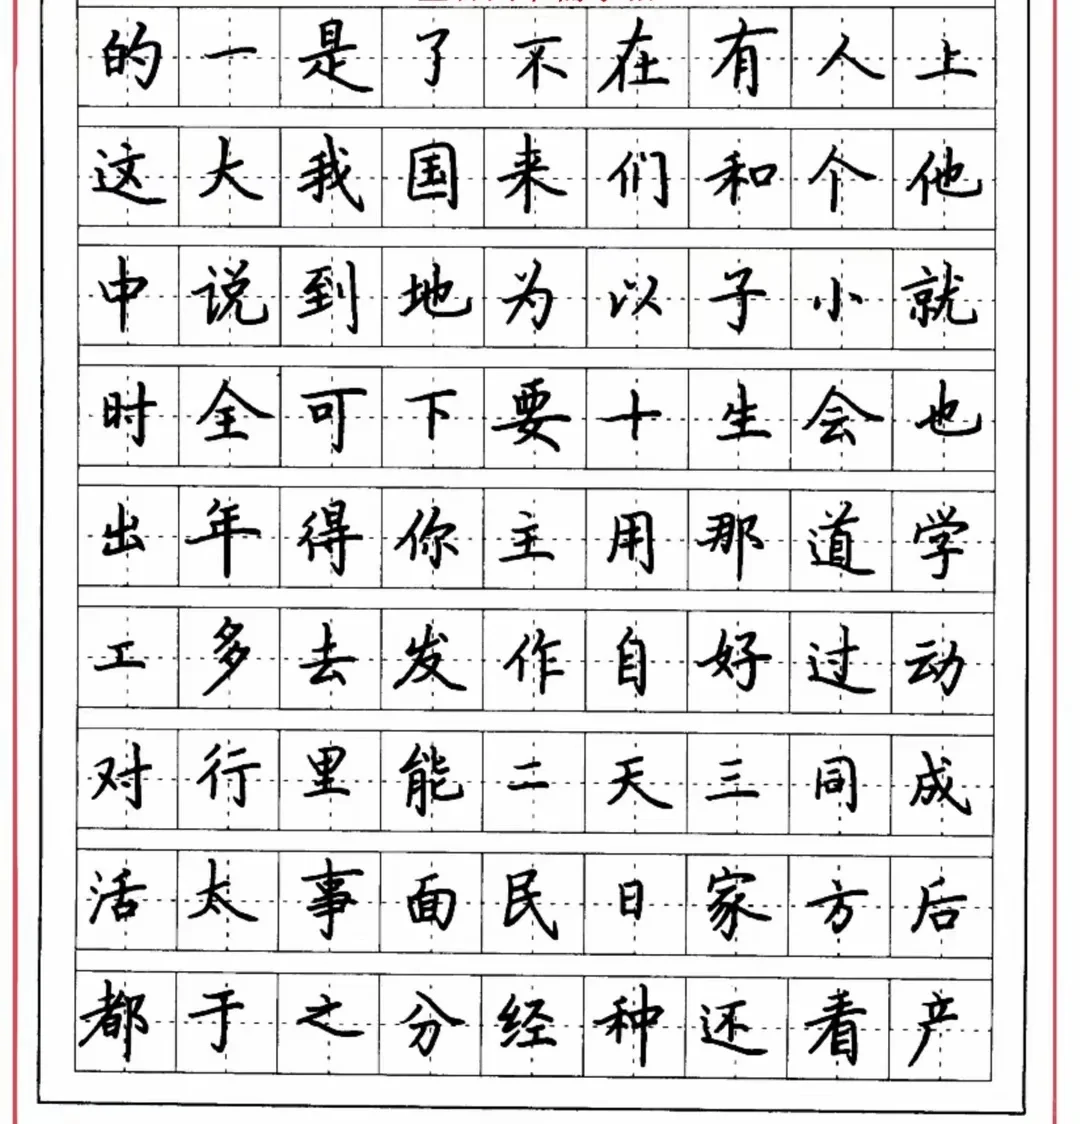 的一是了不在有人上
这大我国来们和个他
中说到地为以子小就
时全可下要十生会也
出年得你主用那道学
工多去发作自好过动
对行里能二天三同成
活太事面民日家方后
都于之分经种还看产